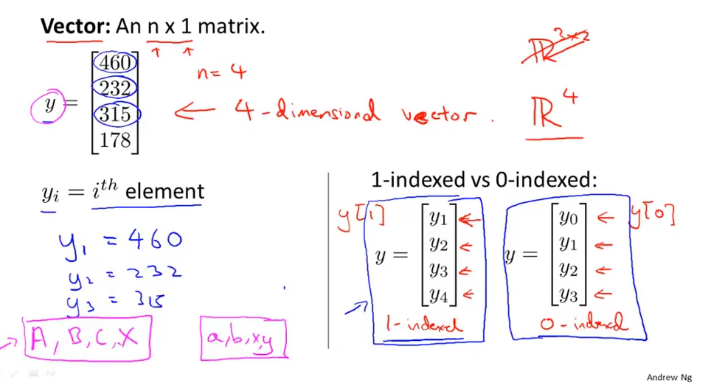 Vector: An n x 1 matrix.
y = [460 232 315 178]
n = 4
← 4-dimensional vector.
ℝ^{3×2}
ℝ^4
y_i = i^{th} element
y_1 = 460
y_2 = 232
y_3 = 315
A, B, C, X
a, b, x, y
1-indexed vs 0-indexed:
y[1]
y = [y_1 y_2 y_3 y_4]
1-indexed
y = [y_0 y_1 y_2 y_3]
y[0]
0-indexed
Andrew Ng